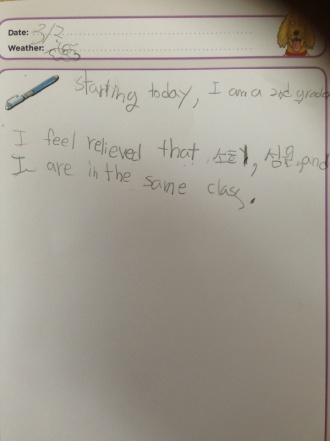 Date: 3/2
Weather:
starting today, I am a 2nd grade
I feel relieved that 소호, 성율, and
I are in the same class.